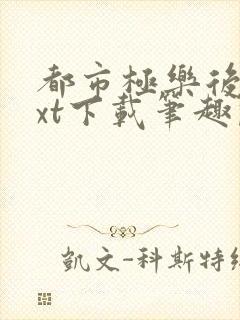 都市極樂後
xt下載筆趣
凱文-科斯特納